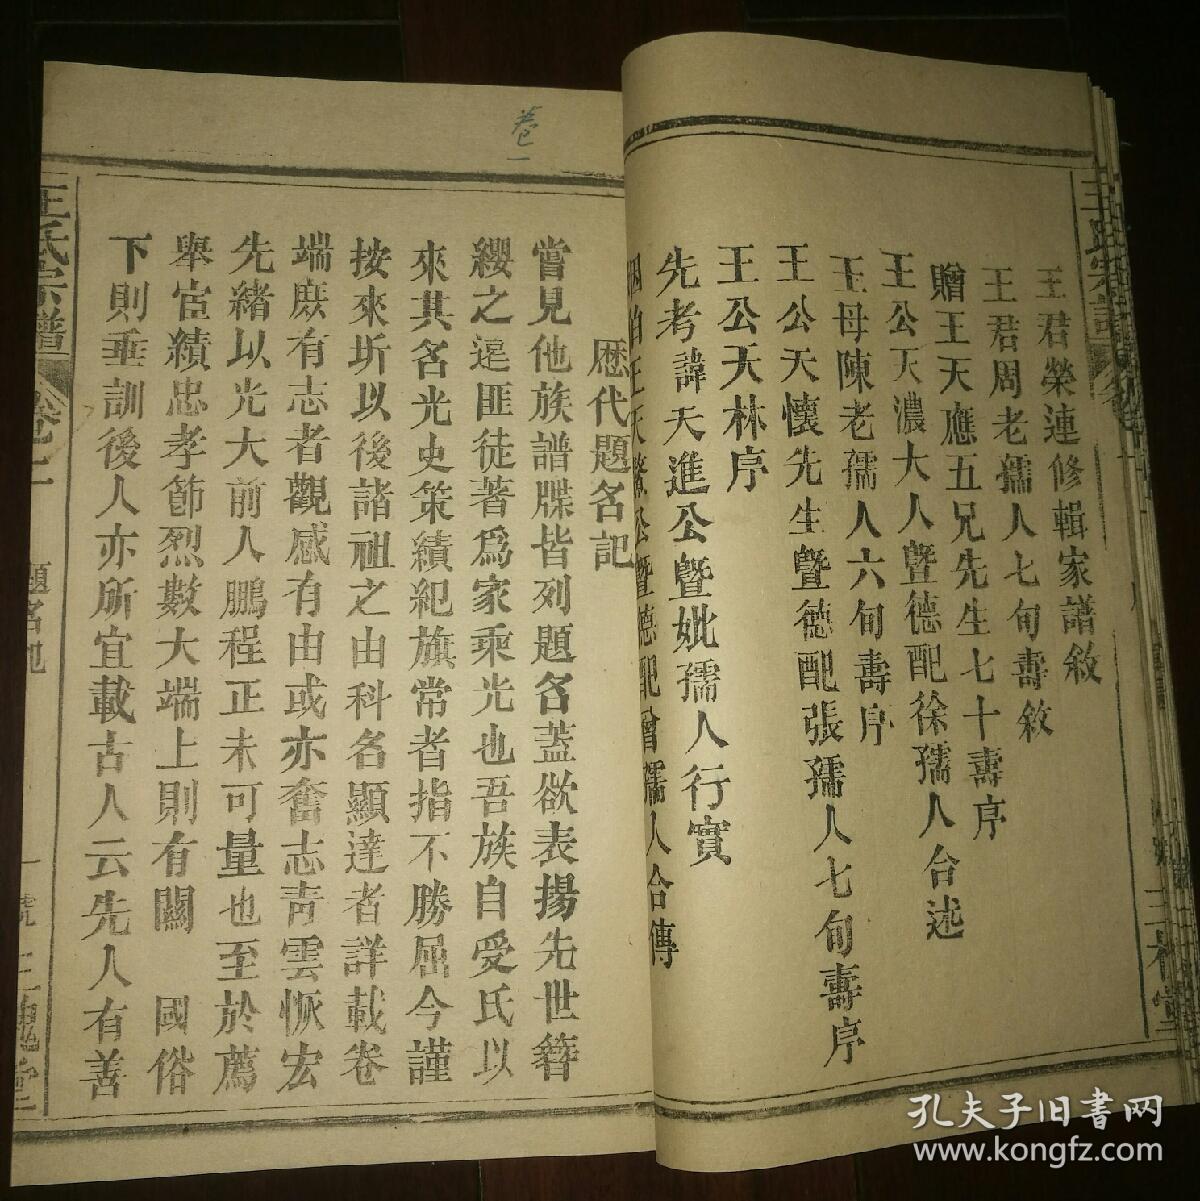 王君榮連修輯家譜敘
王君周老孺人七旬壽敘
贈王天應五兄先生七十壽序
王公天濃大人暨德配徐孺人合述
王母陳老孺人六旬壽序
王公天懷先生暨德配張孺人七旬壽序
王公天林序
先考諱天進公暨妣孺人行實
伯王天公暨德配曾孺人合傳
卷一
歷代題名記
嘗見他族譜牒皆列題名蓋欲表揚先世簪
纓之選匪徒著爲家乘光也吾族自受氏以
來其名光史策績紀旗常者指不勝屈今謹
按來圻以後諸祖之由科名顯達者詳載卷
端庶有志者觀感有由或亦奮志靑雲恢宏
先緒以光大前人鵬程正未可量也至於薦
舉宦績忠孝節烈數大端上則有關 國俗
下則垂訓後人亦所宜載古人云先人有善
王氏宗譜
題名記
孔夫子旧书网
www.kongfz.com